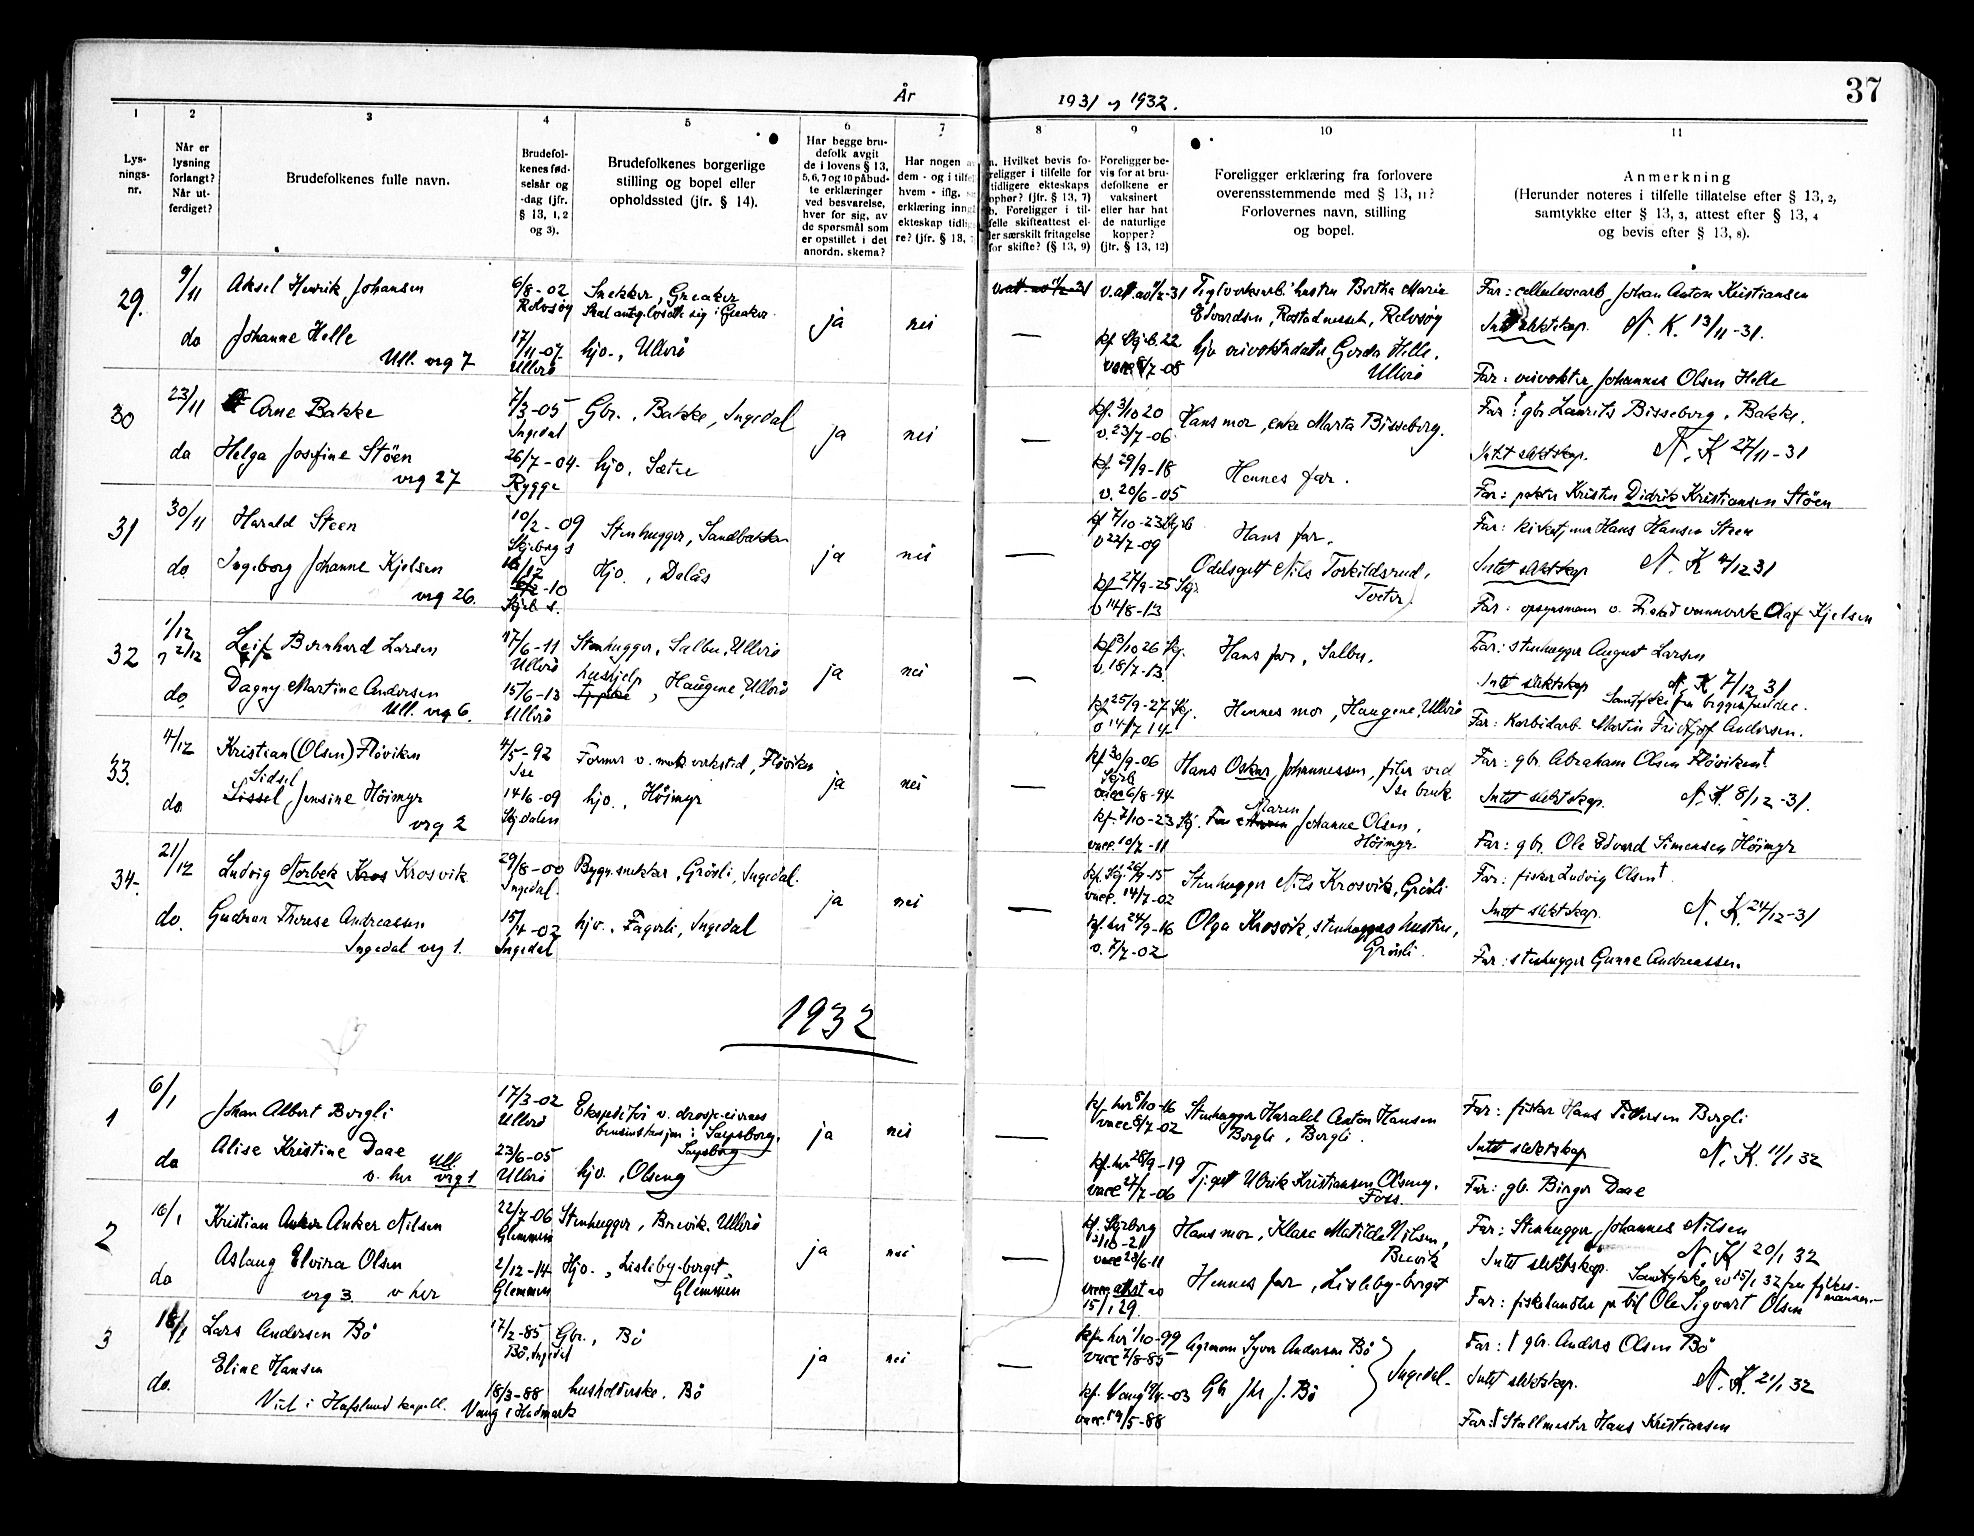 37
År 1931 og 1932.
1 2 3 4 5 6 7 8 9 10 11
Lys-
nings-
nr.
Når er
lysning
forlangt?
Når ut-
ferdiget?
Brudefolkenes fulle navn.
Brudefol-
kenes fød-
selsår og
-dag (jfr.
§ 13, 1, 2
og 3).
Brudefolkenes borgerlige
stilling og bopel eller
opholdssted (jfr. § 14).
Har begge bru-
defolk avgit
de i lovens § 13,
5, 6, 7 og 10 påbud-
te erklæringer
ved besvarelse,
hver for sig, av
de spørsmål som
er opstillet i det
anordn. skema?
Har nogen
dem - og i tilfel
hvem - iflg.
erklæring inng
ekteskap tidlig
re? (jfr. § 13,
Hvilket bevis fo-
religger i tilfelle for
tidligere ekteskaps
ophør? (jfr. § 13, 7)
b. Foreligger i til-
felle skifteattest el-
ler særskilt fritagelse
for skifte? (§ 13, 9)
Foreligger be-
vis for at bru-
defolkene er
vaksinert
eller har hat
de naturlige
kopper?
(jfr. § 13, 12)
Foreligger erklæring fra forlovere
overensstemmende med § 13, 11?
Forlovernes navn, stilling
og bopel.
Anmerkning
(Herunder noteres i tilfelle tillatelse efter § 13, 2,
samtykke efter § 13, 3, attest efter § 13, 4
og bevis efter § 13, 8).
29. 9/11 Aksel Henrik Johansen 6/8-02 Rolvsøy Snekker, Greaker ja nei
Edvardsen, Rostadnesset, Rolvsøy
Far: cellulosearb Johan Anton Kristiansen
Intet slektskap. N. K. 13/11-31.
do Johanne Helle 17/11-07 Ullerö hjv., Ullerö —
Ull. vrg 7
Gerda Helle, Ullerö
Far: Johannes Olsen Helle
30 23/11 Arne Bakke 7/3-05 Ingedal Gbr., Bakke, Ingedal ja nei —
kf. 3/10 20 v. 23/7-06 Hans mor, enke Marta Bisseberg.
Far † gbr Laurits Bisseberg, Bakke.
Intet slektskap. N. K 27/11-31
do Helga Josefine Stöen 26/7-04. Rygge hjv., Sætre
vrg 27
kf. 29/9-18 v. 20/6-05 Hennes far.
Far: Kristen Didrik Kristiansen Stöen
31 30/11 Harald Steen 10/2-09 Skjeberg s Stenhugger, Sandbakken ja nei —
kf 7/10-23 Skjeb v 22/7-09 Hans far.
Far: Hans Hansen Steen
Intet slektskap N. K 4/12 31
do. Ingeborg Johanne Kjelsen Hjv., Dalås
vrg 26.
kf 27/9-25 v 14/8-13 Nils Torkildsrud, Tveter
Far: opsynsmann v. Olaf Kjelsen
32 1/12 2/12 Leif Bernhard Larsen 17/6-11 Ullerö Stenhugger, Salbu, Ullerö ja nei —
kf 3/10 26 Skj. v. 18/7-13. Hans far, Salbu.
Far: stenhugger August Larsen
Intet slektskap N. K 7/12 31
do. Dagny Martine Andersen 15/6-13 Ullerö hushjelp, Haugene, Ullerö
Ull. vrg 6.
kf 25/9-27 Skj. v 14/7 14 Hennes mor, Haugene, Ullerö
Far: Karbidarb. Martin Fridtjof Andersen.
33. 4/12 Kristian (Olsen) Flöviken 4/5-92 Ise Former v. mek verksted, Flöviken ja nei —
kf 30/9-06 Skjeb vacc 6/8-94 Hans Oskar Johannessen, filer ved Ise bruk
Far: gbr. Abraham Olsen Flöviken †
Intet slektskap. N. K. 8/12-31.
do Sidsel Jensine Höimyr 14/6-09 Skjdalen hjv., Höimyr
vrg 2
kf. 7/10-23 Skj. vacc. 10/7-11 Maren Johanne Olsen, Höimyr.
Far: gbr. Ole Edvard Simensen Höimyr
34. 21/12 Ludvig Norbek Krosvik 29/8-00 Ingedal Bygn.snekker, Grösli, Ingedal. ja nei —
vacc. 14/7-02 Stenhugger Nils Krosvik, Grösli
Far: fisker Ludvig Olsen †
Intet slektskap. N. K. 24/12-31
do. Gudrun Therese Andreassen 15/4-02 Ingedal hjv., Fagerli, Ingedal
Ingedal vrg 1.
kf. her 24/9-16 v. 7/7-02 Olga Krosvik, stenhuggers hustru, Grösli.
Far: stenhugger Gunne Andreassen.
1932
1 6/1 Johan Albert Bergli 17/3-02 Ullerö Ekspeditör v. drosje-eiernes bensinstasjon i Sarpsborg, Sarpsborg ja nei —
kf her 8/10-16 vacc 8/7-02 Stenhugger Harald Anton Hansen Bergli, Bergli.
Far: fisker Hans Pettersen Bergli
Intet slektskap N. K. 11/1 32
do Alise Kristine Daae 23/6-05 Ullerö hjv., Olseng
v. her Ull. vrg 1
kf. her 28/9-19 vacc 27/7-06 Ulrik Kristiansen Olseng, Foss.
Far: gbr. Birger Daae
2 16/1 Kristian Anker Nilsen 22/7-06 Glemmen Stenhugger, Brevik. Ullerö ja nei —
kf. Skjeberg 2/10-21 vacc 28/6-11 Hans mor, Klara Matilde Nilsen, Brevik
Far: Stenhugger Johannes Nilsen
Intet slektskap. N K 20/1 32
Samtykke av 15/1 32 fra fylkesmannen—
do Aslaug Elvira Olsen 2/12-14 Glemmen Hjv., Lisleby-berget, Glemmen
vrg 3. v her
vacc attest av 15/1 29 Hennes far, Lisleby-berget
Far: fiskehandler p. bil Ole Sigvart Olsen
3 18/1 Lars Andersen Bö 17/2-85 Bö, Ingedal Gbr., Bö ja nei —
kf. her 1/10-99 vacc 7/8-85 Agronom Syver Andersen Bö } Ingedal-
Far: † gbr. Anders Olsen Bö
Intet slektskap. N. K. 21/1 32
do. Eline Hansen 18/3-88 Vang i Hedmark husholderske, Bö
Viet i Hafslund kapell.
kf. Vang -03 vacc. 19/5-88 Gbr J. Bö
Far: † Stallmester Hans Kristiansen